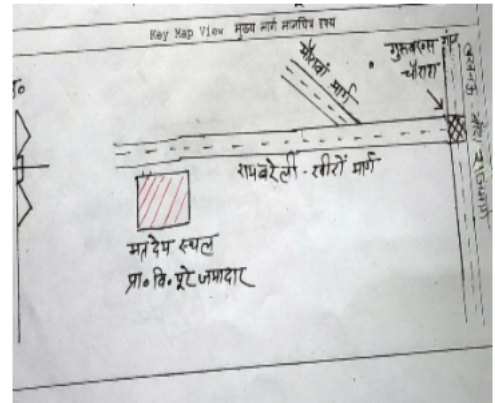 Key Map View मुख्य मार्ग मानचित्र दृश्य
मौरावां मार्ग
गुरुबख्श गंज
चौराहा
रायबरेली - खीरों मार्ग
मतदेय स्थल
प्रा० वि० पूरे जमादार